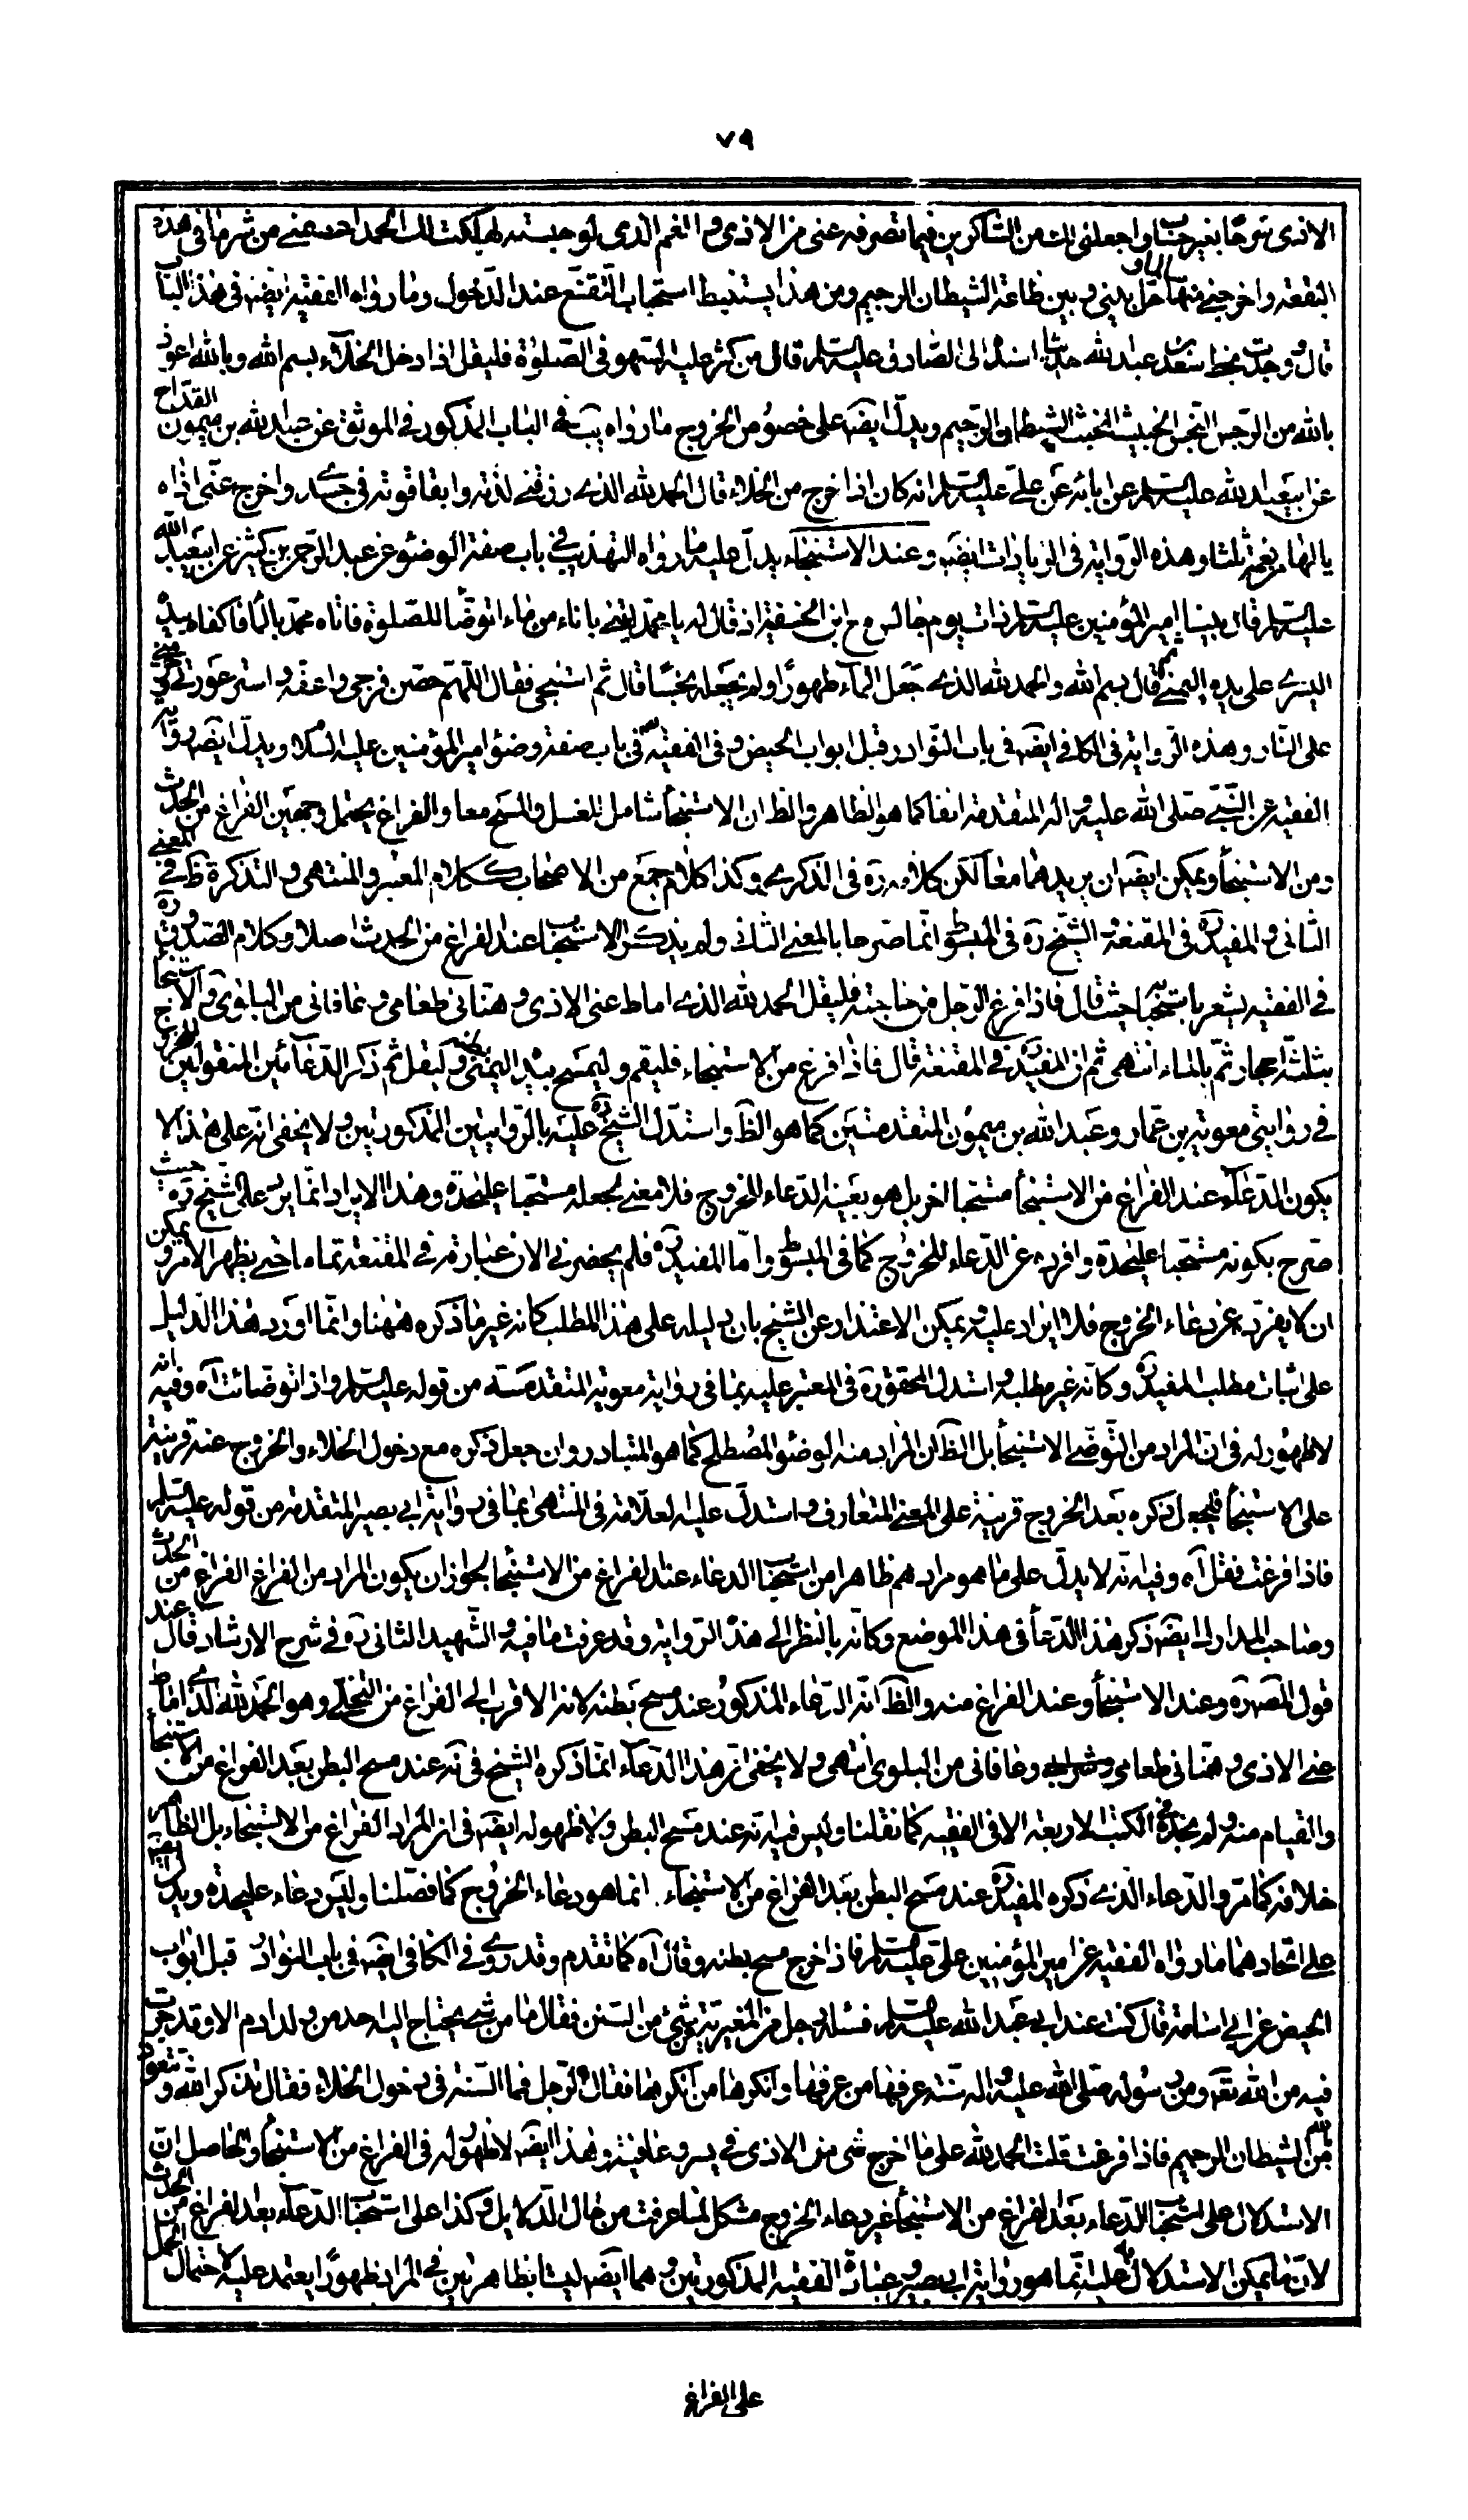 ٧٩
الاذى سرحا بغير حساب واجعلنى لك من الشاكرين فيما تصرفه عنى من الاذى والغم الذى لو حبسته هلكت لك الحمد اعصمنى من شر ما فى هذه
البقعة واخرجنى منها سالما وحل بينى وبين طاعة الشيطان الرجيم ومن هذا يستنبط استحباب التقنع عند الدخول وما رواه الفقيه ايضا فى هذا الباب
قال وجدت بخط سعد بن عبد الله حديثا اسنده الى الصادق عليه السلم قال من كثر عليه السهو فى الصلوة فليقل اذا دخل الخلاء بسم الله وبالله اعوذ
بالله من الرجس النجس الخبيث المخبث الشيطان الرجيم ويدل ايضا على خصوص الخروج ما رواه يب فى الباب المذكور فى الموثق عن عبد الله بن ميمون القداح
عن ابيعبد الله عليه السلم عن ابائه عن على عليه السلم انه كان اذا خرج من الخلاء قال الحمد لله الذى رزقنى لذته وابقا قوته فى جسدى واخرج عنى اذاه
يا لها من نعمة ثلثا وهذه الرواية فى الزيادات ايضا وعند الاستنجاء يدل عليه ما رواه التهذيب فى باب صفة الوضوء عن عبد الرحمن بن كثير عن ابيعبد الله
عليه السلم قال بينا امير المؤمنين عليه السلم ذات يوم جالس مع ابن الحنفية اذ قال له يا محمد ايتنى باناء من ماء اتوضأ للصلوة فاتاه محمد بالماء فاكفاه بيده
اليسرى على يده اليمنى ثم قال بسم الله والحمد لله الذى جعل الماء طهورا ولم يجعله نجسا قال ثم استنجى فقال اللهم حصن فرجى واعفه واستر عورتى وحرمنى
على النار وهذه الرواية فى الكافى ايضا فى باب النوادر قبل ابواب الحيض وفى الفقيه فى باب صفة وضوء امير المؤمنين عليه السلام ويدل ايضا رواية
الفقيه عن النبى صلى الله عليه واله المتقدمة انفا كما هو الظاهر والظ ان الاستنجاء شامل للغسل والمسح معا والفراغ يحتمل وجهين الفراغ من الحدث
ومن الاستنجاء ويمكن ايضا ان يريدهما معا لكن كلامه ره فى الذكرى وكذا كلام جمع من الاصحاب ككلام المعتبر والمنتهى والتذكرة ظ فى المعنى
الثانى والمفيد ره فى المقنعة والشيخ ره فى المبسوط انما صرحا بالمعنى الثانى ولم يذكر الاستحباب عند الفراغ من الحدث اصلا وكلام الصدوق ره
فى الفقيه يشعر باستحبابه حيث قال فاذا فرغ الرجل من حاجته فليقل الحمد لله الذى اماط عنى الاذى وهنأنى طعامى وعافانى من البلوى والاستنجاء
بثلثة احجار ثم بالماء انتهى ثم ان المفيد ره فى المقنعة قال فاذا فرغ من الاستنجاء فليقم وليمسح بيده اليمنى بطنه وليقل ثم ذكر الدعائين المنقولين للخروج
فى روايتى معوية بن عمار وعبد الله بن ميمون المتقدمتين كما هو الظ واستدل الشيخ ره عليه بالروايتين المذكورتين ولا يخفى انه على هذا لا
يكون الدعاء عند الفراغ من الاستنجاء مستحبا اخر بل هو بعينه الدعاء للخروج فلا معنى لجعله مستحبا عليحدة وهذا الايراد انما يرد على الشيخ ره حيث
صرح بكونه مستحبا عليحدة وافرده عن الدعاء للخروج كما فى المبسوط واما المفيد ره فلم يحضرنى الان عبارته فى المقنعة بتمامها حتى يظهر الامر ويمكن
ان لا يفرده عن دعاء الخروج فلا ايراد عليه ويمكن الاعتذار عن الشيخ بان دليله على هذا المطلب كانه غير ما ذكره ههنا وانما اورد هذا الدليل
على اثبات مطلب المفيد ره وكانه غير مطلبه واستدل المحقق ره فى المعتبر عليه بما فى رواية معوية المتقدمة من قوله عليه السلم واذا توضات اه وفيه انه
لا ظهور له فى ان المراد من التوضى الاستنجاء بل الظ ان المراد منه الوضوء المصطلح كما هو المتبادر وان جعل ذكره مع دخول الخلاء والخروج عنه قرينة
على الاستنجاء فليجعل ذكره بعد الخروج قرينة على المعنى المتعارف واستدل عليه العلامة فى المنتهى بما فى رواية ابى بصير المتقدمة من قوله عليه السلم
فاذا فرغت فقل اه وفيه انه لا يدل على ما هو مرادهم ظاهرا من استحباب الدعاء عند الفراغ من الاستنجاء لجواز ان يكون المراد من الفراغ الفراغ من الحدث
وصاحب المدارك ايضا ذكر هذا الدعاء فى هذا الموضع وكانه بالنظر الى هذه الرواية وقد عرفت ما فيه والشهيد الثانى ره فى شرح الارشاد قال عند
قول المصنف ره وعند الاستنجاء وعند الفراغ منه والظ انه الدعاء المذكور عند مسح بطنه لانه الاقرب الى الفراغ من التخلى وهو الحمد لله الذى اماط
عنى الاذى وهنأنى طعامى وشرابى وعافانى من البلوى انتهى ولا يخفى ان هذا الدعاء انما ذكره الشيخ فى انه عند مسح البطن بعد الفراغ من الاستنجاء
والقيام منه ولم نجده فى الكتب الاربعة الا فى الفقيه كما نقلنا وليس فيه انه عند مسح البطن ولا ظهور له ايضا فى ان المراد الفراغ من الاستنجاء بل الظاهر
خلافه كما مر والدعاء الذى ذكره المفيد ره عند مسح البطن بعد الفراغ من الاستنجاء انما هو دعاء الخروج كما فصلنا وليس دعاء عليحدة ويدل ايضا
على اتحادهما ما رواه الفقيه عن امير المؤمنين على عليه السلم فاذا خرج مسح بطنه وقال اه كما تقدم وقد روى فى الكافى ايضا فى باب النوادر قبل ابواب
الحيض عن ابى اسامة قال كنت عند ابى عبد الله عليه السلم فسئله رجل من المغيرية عن شئ من السنن فقال ما من شئ يحتاج اليه احد من ولد ادم الا وقد جرت
فيه من الله تع ومن رسوله صلى الله عليه واله سنة عرفها من عرفها وانكرها من انكرها فقال الرجل فما السنة فى دخول الخلاء فقال تذكر الله وتتعوذ
بالله من الشيطان الرجيم فاذا فرغت قلت الحمد لله على ما اخرج منى من الاذى فى يسر وعافية وهذا ايضا لا ظهور له فى الفراغ من الاستنجاء والحاصل ان
الاستدلال على استحباب الدعاء بعد الفراغ من الاستنجاء غير دعاء الخروج مشكل لما عرفت من حال الدلايل وكذا على استحباب الدعاء بعد الفراغ من الحدث
لان ما يمكن الاستدلال به عليه انما هو رواية ابى بصير وعبارة الفقيه المذكورتين وهما ايضا ليستا بظاهرتين فى المراد ظهورا يعتمد عليه لاحتمال الحمل
على الفراغ